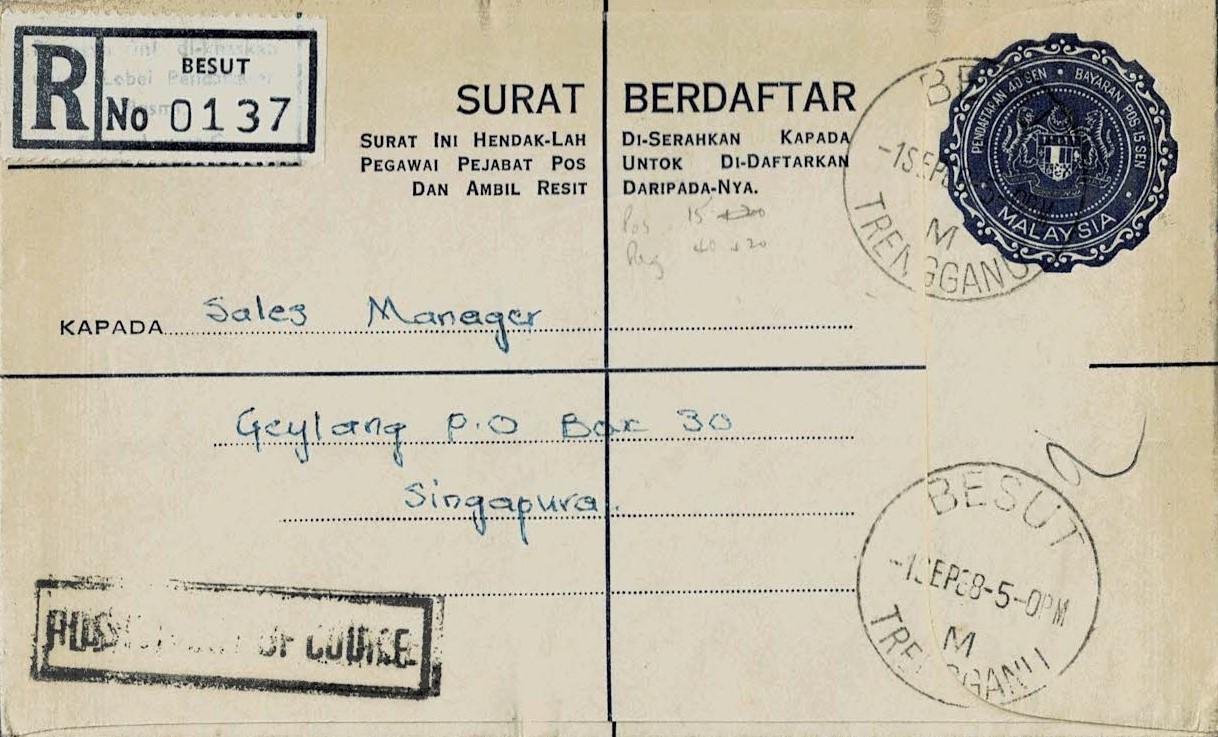 R
BESUT
No 0137
SURAT BERDAFTAR
SURAT INI HENDAK-LAH DI-SERAHKAN KAPADA
PEGAWAI PEJABAT POS UNTOK DI-DAFTARKAN
DAN AMBIL RESIT DARIPADA-NYA.
Pos 15 +20
Reg 40 +20
PENDAFTARAN 40 SEN • BAYARAN POS 15 SEN
MALAYSIA
-1SEP
M
TRENGGANU
KAPADA Sales Manager
Geylang P.O Box 30
Singapura.
BESUT
-1SEP68-5-0PM
M
TRENGGANU
OF COURSE